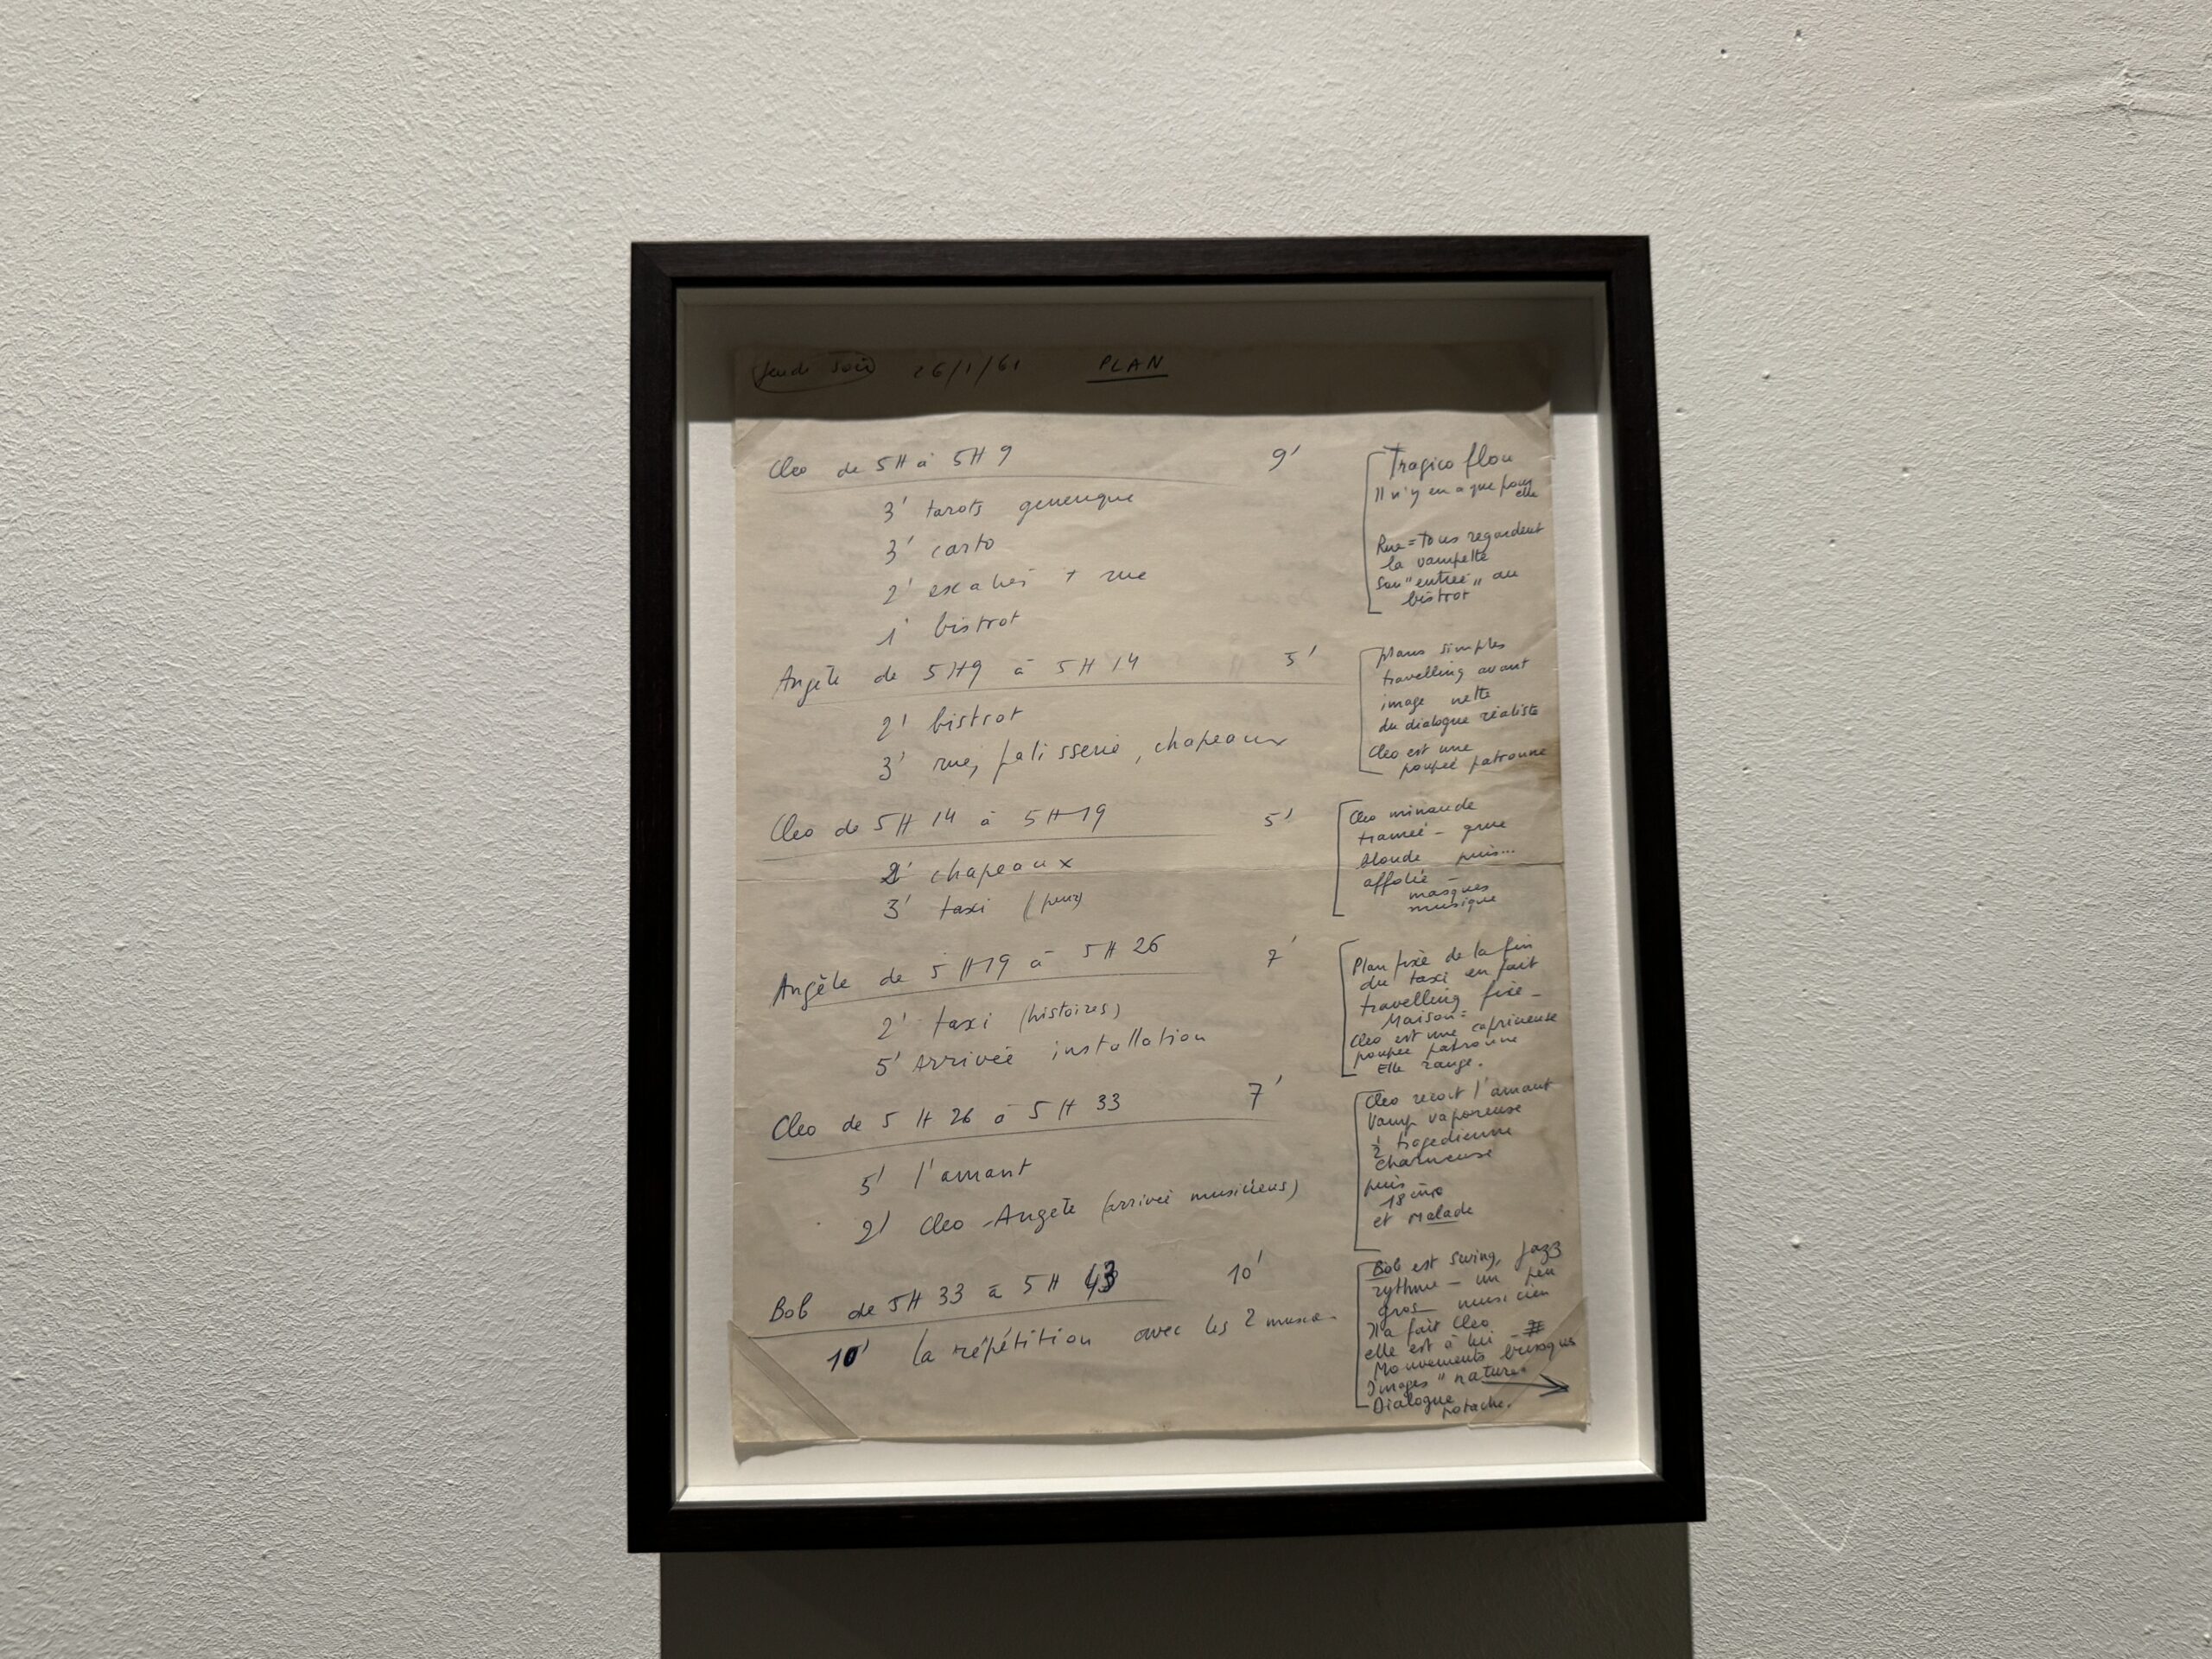 Jeudi soir 26/1/61 PLAN
Cleo de 5H à 5H9 9'
3' tarots generique
3' carto
2' escalier + rue
1' bistrot
Tragico flou
Il n'y en a que pour
elle
Rue = tous regardent
la vampette
son "entrée" au
bistrot
Angèle de 5H9 à 5H14 5'
2' bistrot
3' rue, patisserie, chapeaux
plans simples
travelling avant
image nette
du dialogue réaliste
Cleo est une
poupée patronne
Cleo de 5H14 à 5H19 5'
2' chapeaux
3' taxi (peur)
Cleo minaude
grue
blonde puis...
affolée –
masques
musique
Angèle de 5H19 à 5H26 7'
2' taxi (histoires)
5' Arrivée installation
Plan fixe de la fin
du taxi en fait
travelling fixe –
Maison =
Cleo est une capricieuse
poupée patronne
Elle range.
Cleo de 5H26 à 5H33 7'
5' l'amant
2' Cleo-Angèle (arrivée musiciens)
Cleo reçoit l'amant
Vamp vaporeuse
½ tragedienne
charmeuse
puis
et Malade
Bob de 5H33 à 5H43 10'
10' la répétition avec les 2
Bob est swing, jazz
rythme – un peu
gros musicien
Il a fait Cleo
elle est à lui –
Mouvements brusques
Images "nature"
Dialogue
potache.